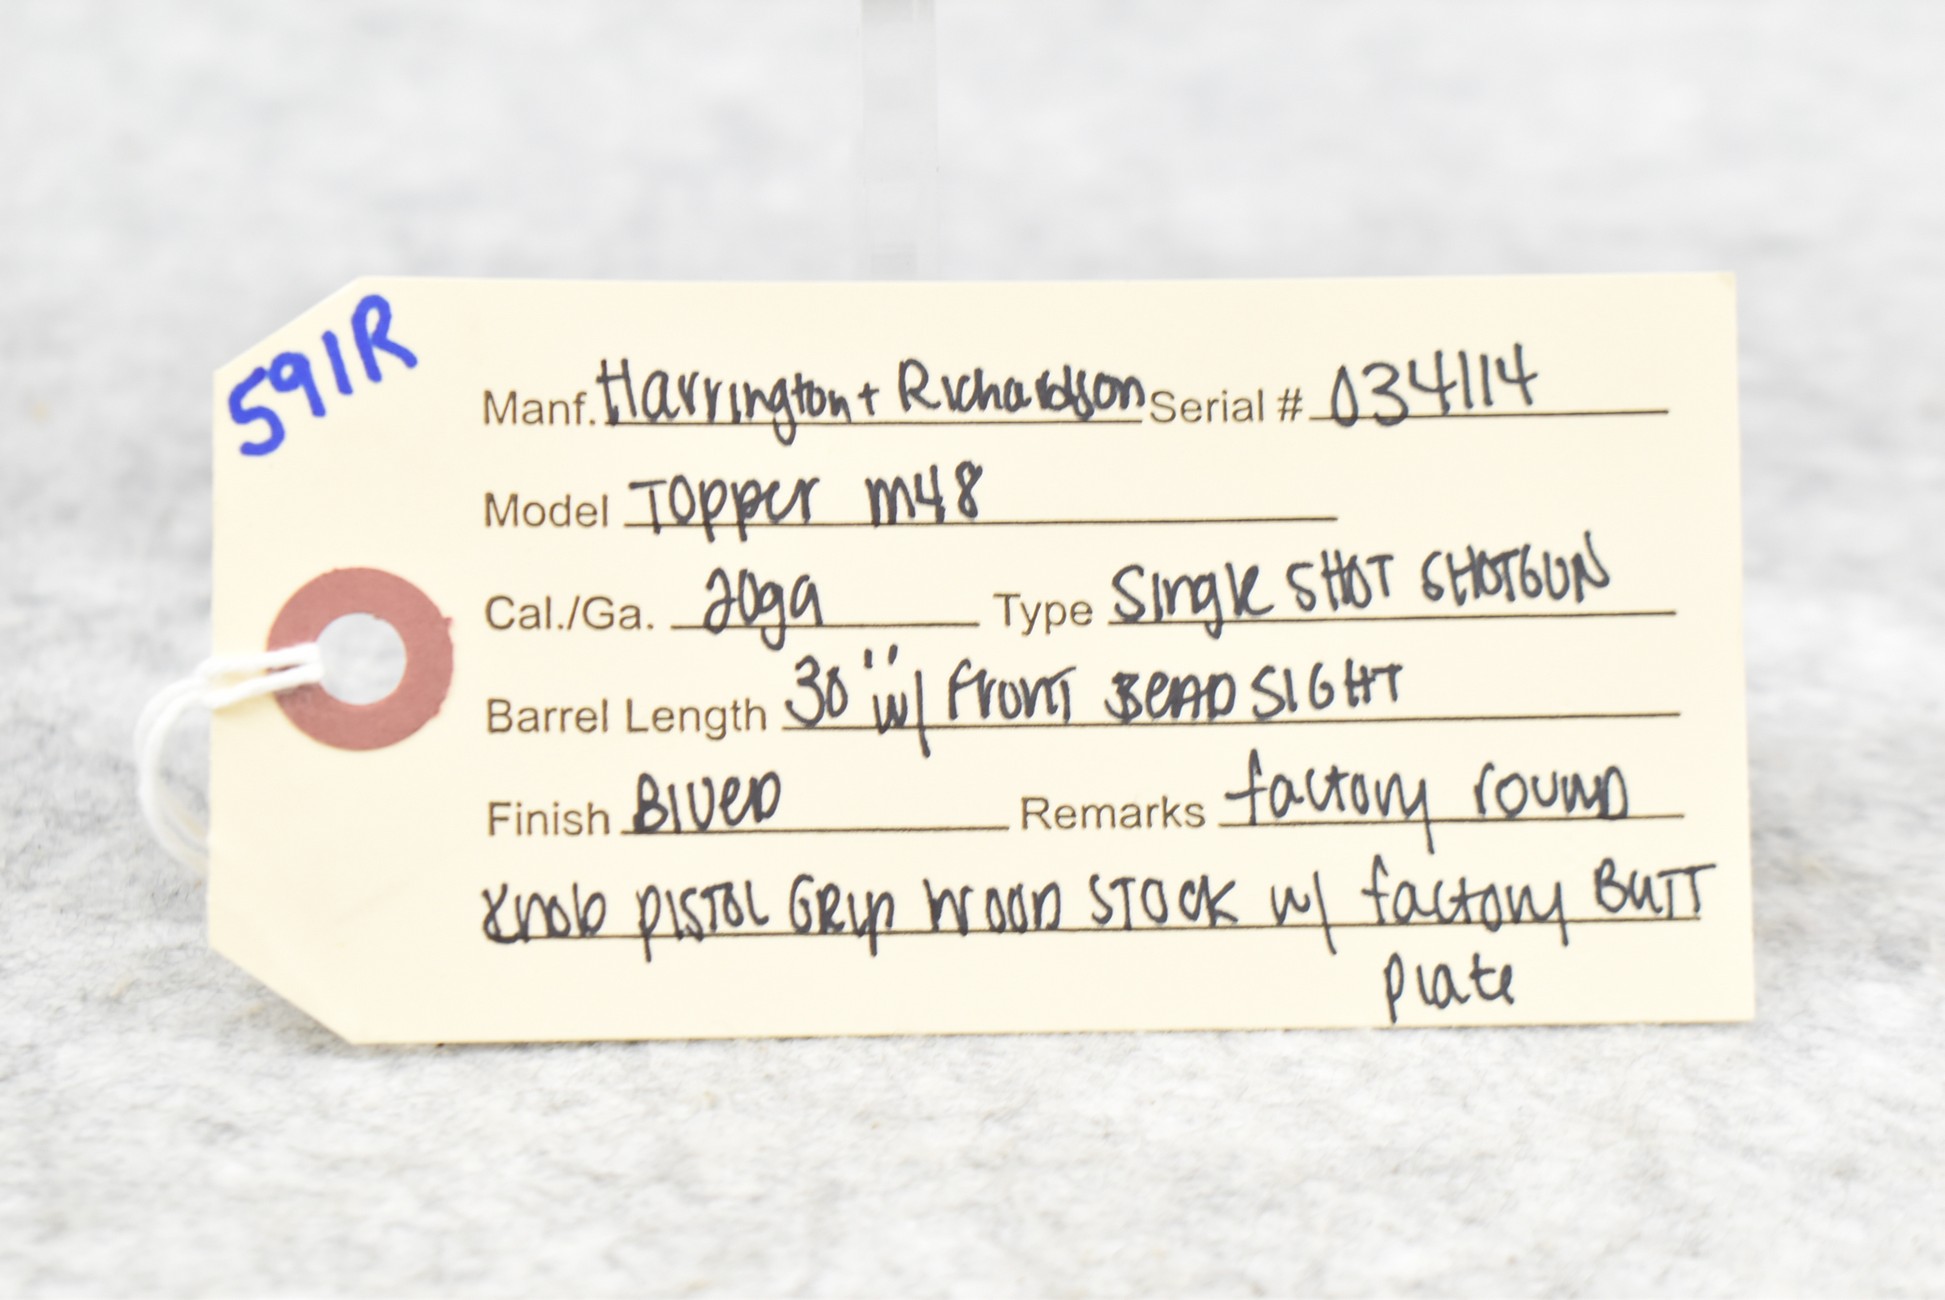 591R
Manf. Harrington + Richardson Serial # 034114
Model Topper M48
Cal./Ga. 20ga Type Single SHOT SHOTGUN
Barrel Length 30" w/ Front BEAD SIGHT
Finish Blued Remarks factory round
knob PISTOL GRIP WOOD STOCK w/ factory BUTT
Plate